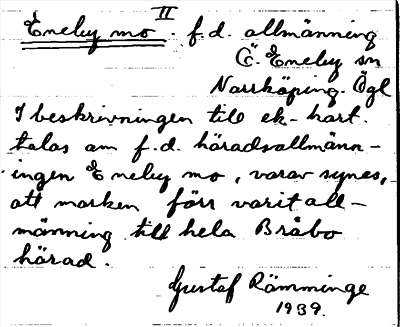 II
Eneby mo. f.d. allmänning
Ö. Eneby sn
Norrköping. Ögl
I beskrivningen till ek-kart.
talas om f.d. häradsallmänn-
ingen Eneby mo, varav synes,
att marken förr varit all-
männing till hela Bråbo
härad.
Gustaf Rämminge
1939.